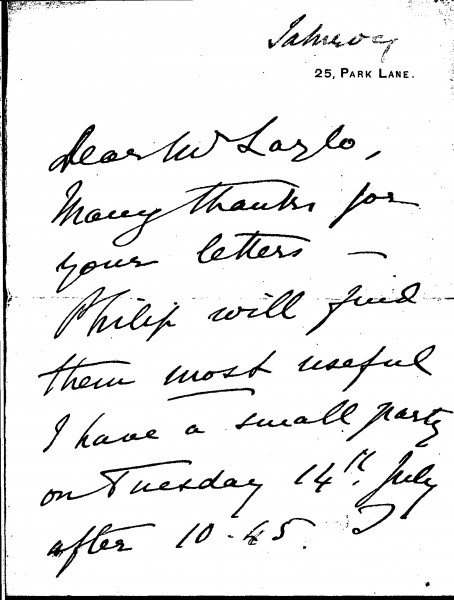 25, PARK LANE.
Dear Mr Lazlo,
Many thanks for
your letters —
Philip will find
them most useful
I have a small party
on Tuesday 14th. July
after 10-45. I